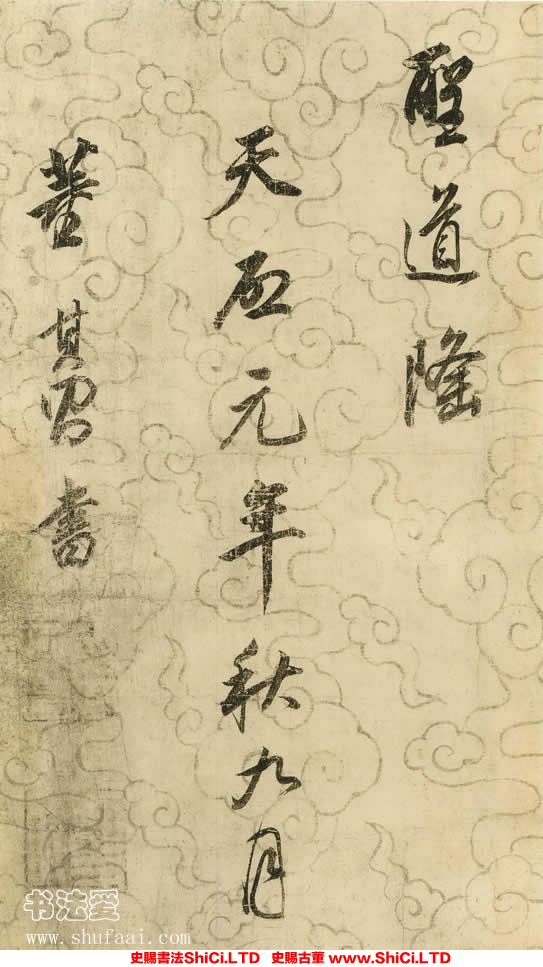 聖道隆
天啟元年秋九月
董其昌書
书法爱
www.shufaai.com
史賜書法ShiCi.LTD 史賜古董 www.ShiCi.LTD